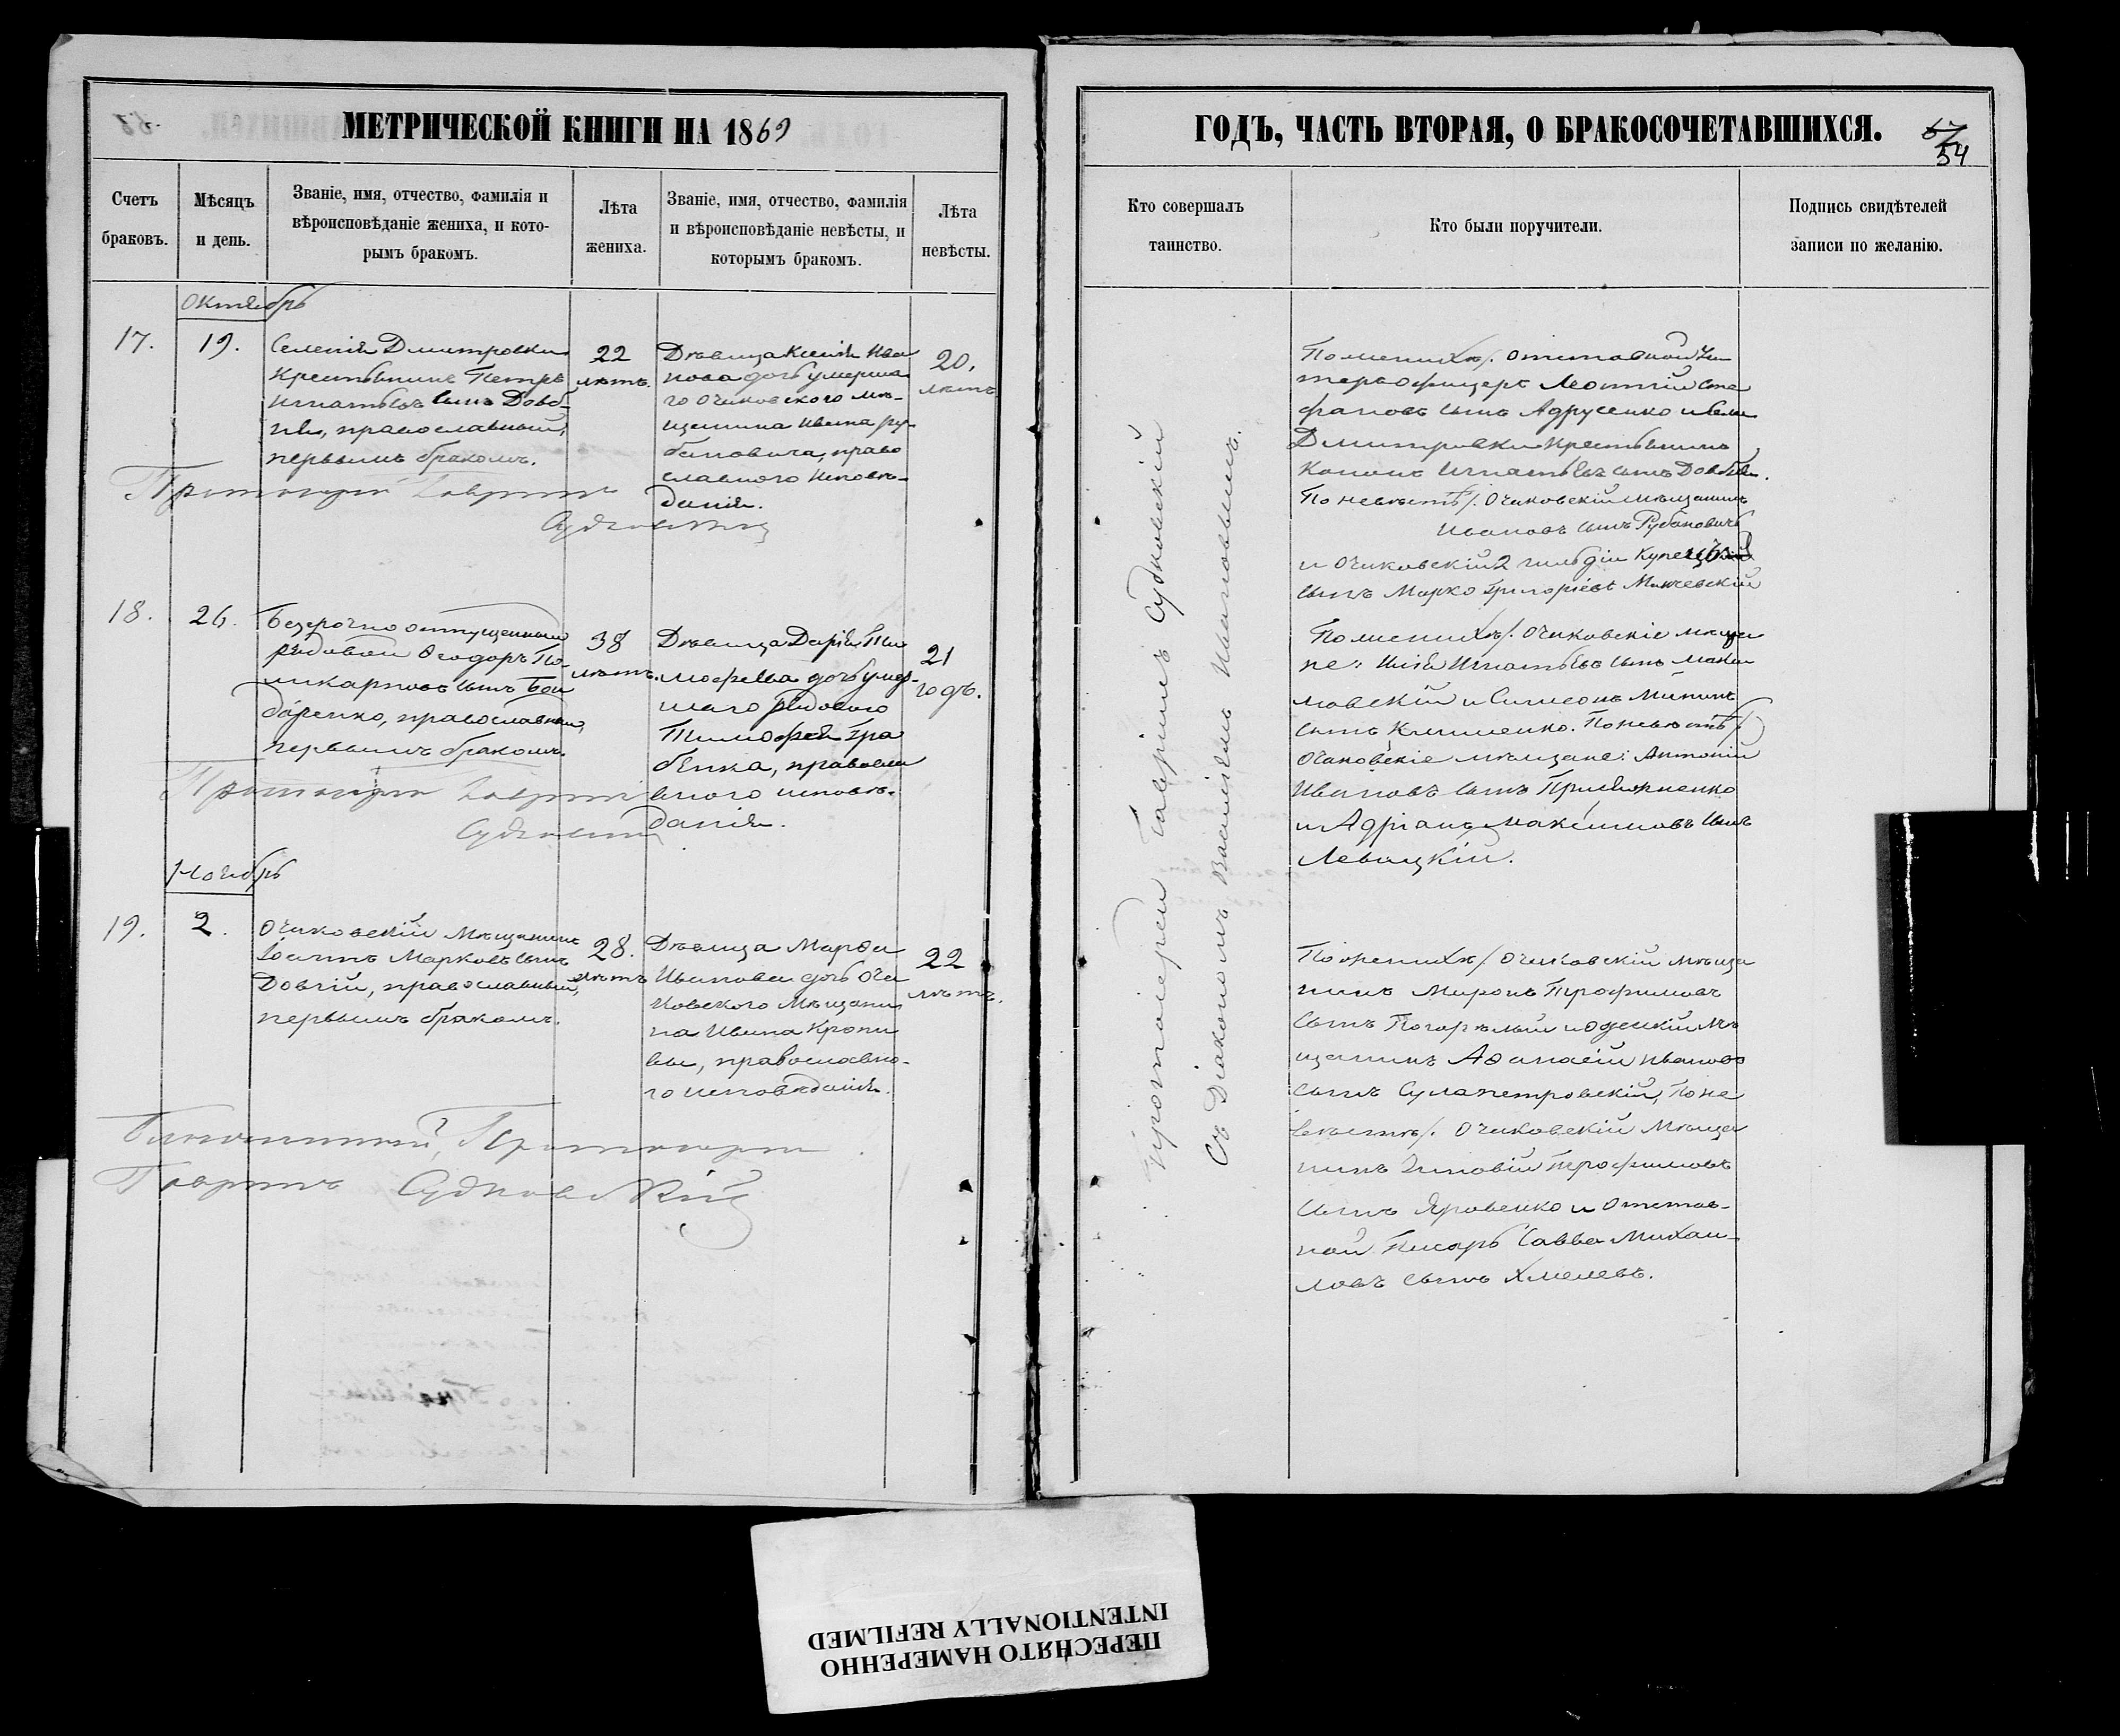 МЕТРИЧЕСКОЙ КНИГИ НА 1869
Счетъ
браковъ.
Мѣсяцъ
и день.
Званіе, имя, отчество, фамилія и
вѣроисповѣданіе жениха, и кото-
рымъ бракомъ.
Лѣта
жениха.
Званіе, имя, отчество, фамилія
и вѣроисповѣданіе невѣсты, и
которымъ бракомъ.
Лѣта
невѣсты.
Октябрь
17.
19.
Селенія Дмитровки
крестьянинъ Петръ
Игнатьевъ сынъ Довб-
ня, православный,
первымъ бракомъ.
22
лѣтъ.
Дѣвица Ксенія Ива
нова дочь умерша
го очаковского мѣ-
щанина Ивана Ру-
бановича, право
славного исповѣ-
данія.
20.
лѣтъ
Протоіерей Гавріилъ
Судковскій
18.
26.
Безсрочно отпущенный
рядовой Ѳеодоръ По-
ликарповъ сынъ Бон
даренко, православный,
первымъ бракомъ.
38
лѣтъ.
Дѣвица Дарія Ти
моѳеева дочь умер-
шаго рядового
Тимофея Гра
бенка, православ
вного исповѣ-
данія.
21
годъ.
Протоіерей Гавріилъ
Судковскій
Ноябрь
19.
2.
Очаковскій мѣщанинъ
Іоаннъ Марковъ сынъ
Довгій, православный,
первымъ бракомъ.
28.
лѣтъ
Дѣвица Марѳа
Иванова дочь Оча
ковского мѣщани
на Ивана Кропи
вы, православно-
го исповѣданія.
22
лѣтъ.
Благочинный, Протоіерей
Гавріилъ Судковскій
ГОДЪ, ЧАСТЬ ВТОРАЯ, О БРАКОСОЧЕТАВШИХСЯ.
67
54
Кто совершалъ
таинство.
Кто были поручители.
Подпись свидѣтелей
записи по желанію.
Протоіерей Гавріилъ Судковскій
съ Діакономъ Василіемъ Ивановымъ.
По женихѣ/: отставной Ун
теръ офицеръ Леонтій Сте
фановъ сынъ Адрусенко и сел.
Дмитровки крестьянинъ
Кононъ Игнатьевъ сынъ Довбня.
По невѣстѣ/: Очаковскій мѣщанинъ
Ивановъ сынъ Рубановичъ
и Очаковскій 2 гильдіи купецкій
сынъ Марко Григорьевъ Манчевскій
По женихѣ/: Очаковскіе мѣща
не: Илія Игнатьевъ сынъ Мани
ловскій и Симеонъ Мининъ
сынъ Клименко. По невѣстѣ/:
Очаковскіе мѣщане: Антоній
Ивановъ сынъ Приложненко
и Адріанъ Максимовъ сынъ
Левицкій.
По женихѣ/: Очаковскій мѣща
нинъ Миронъ Трофимовъ
сынъ Погорѣлый и Одесскій мѣ
щанинъ Аѳанасій Ивановъ
сынъ Сулапетровскій, По не
вѣстѣ/: Очаковскій мѣща
нинъ Зиновій Трофимовъ
сынъ Яровенко и Отстав-
ной писарь Савва Михаи-
ловъ сынъ Хмелевъ.
ПЕРЕСНЯТО НАМЕРЕННО
INTENTIONALLY REFILMED